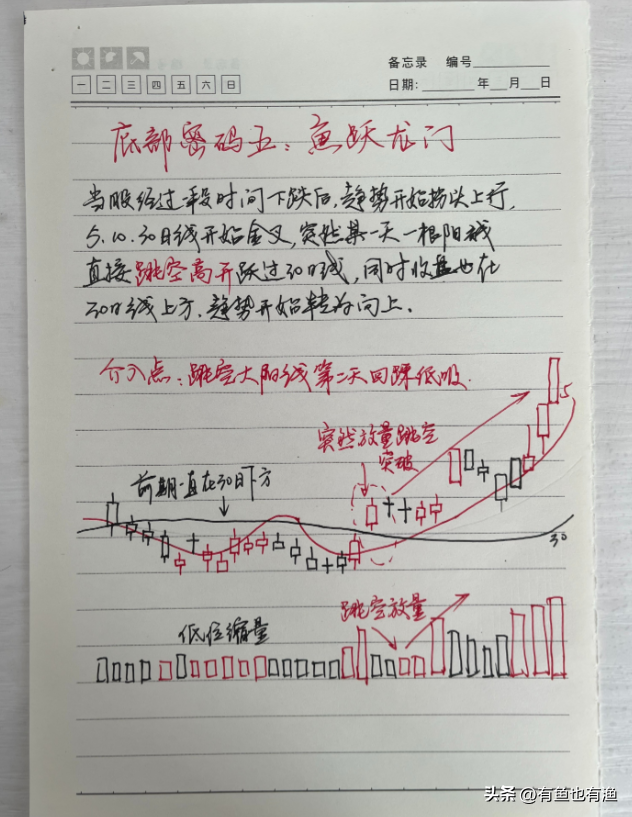 备忘录 编号
一 二 三 四 五 六 日
日期: 年 月 日
底部密码五：鱼妖龙门
当股经过一段时间下跌后，趋势开始拐头上行，
5.10.30日线开始金叉，突然某一天一根阳线
直接跳空高开跃过30日线，同时收盘也在
30日线上方，趋势开始转为向上。
介入点：跳空大阳线第二天回踩低吸.
突然放量跳空
突破
5
前期一直在30日下方
30
跳空放量
低位缩量
头条 @有鱼也有渔